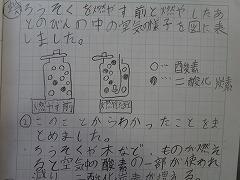 ろうそくを燃やす前と燃やしたあ
とのびんの中の空気の様子を図に表
しました。
○…酸素
…二酸化炭素
燃やす前
①このことからわかったことをま
とめました。
ろうそくや木など、ものが燃え
ると空気中の酸素の一部が使われ
減り、二酸化炭素が増える。